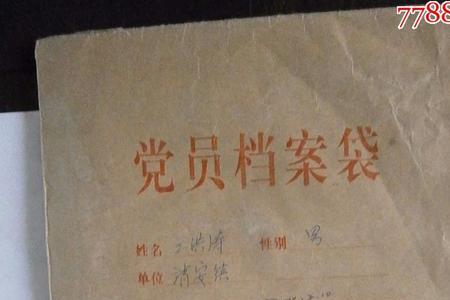 7788
党员档案袋
姓名 洪涛 性别 男
单位 清安镇